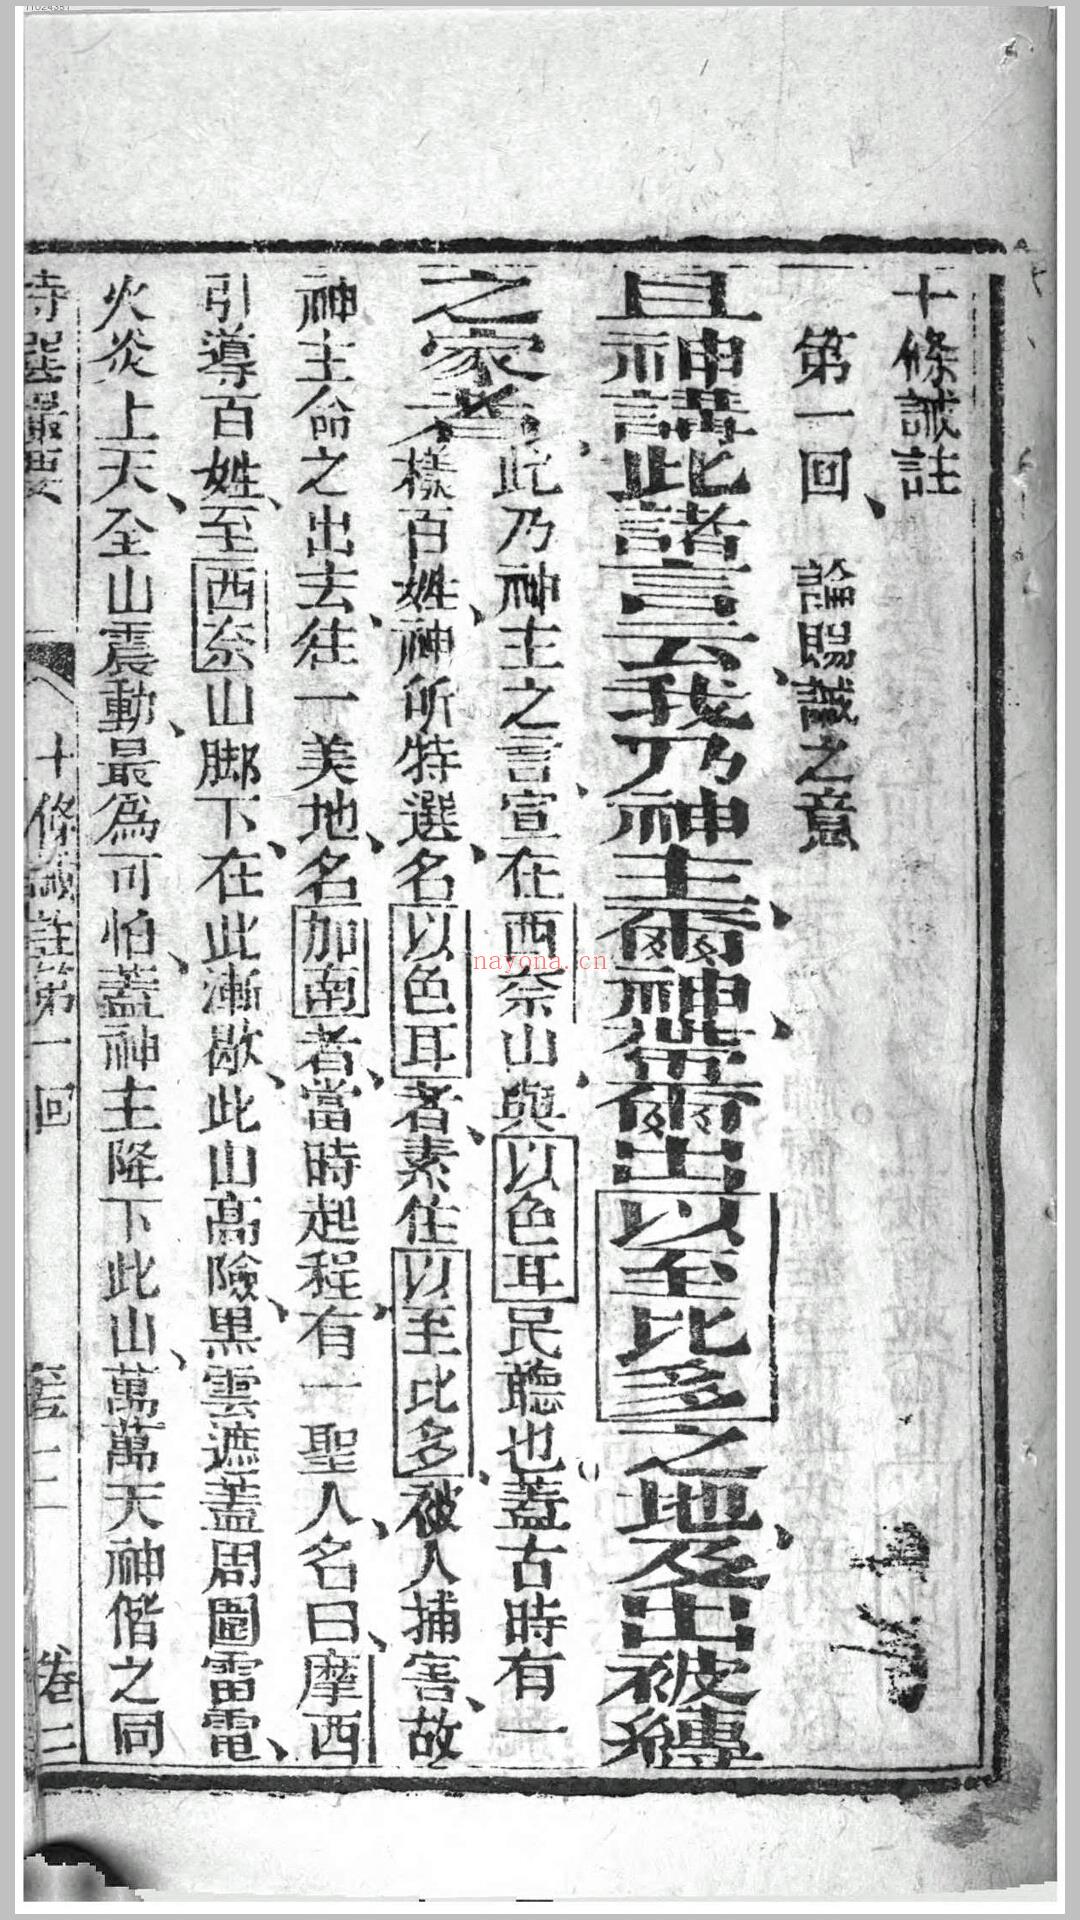 十條誡註
第一回、論賜誡之意
且神講此諸言云、我乃神主、爾神、帶爾出以至比多之地、及出被縛
之家者、此乃神主之言、宣在西奈山、與以色耳民聽也、蓋古時有一
樣百姓、神所特選、名以色耳者、素住以至比多、被人捕害、故
神主命之出去、往一美地、名加南者、當時起程、有一聖人、名曰、摩西
引導百姓、至西奈山脚下、在此漸歇、此山高險、黑雲遮蓋周圍雷電、
火炎上天、全山震動、最為可怕、蓋神主降下此山、萬萬天神偕之同
十條誡註第一回
卷二
nayona.cn